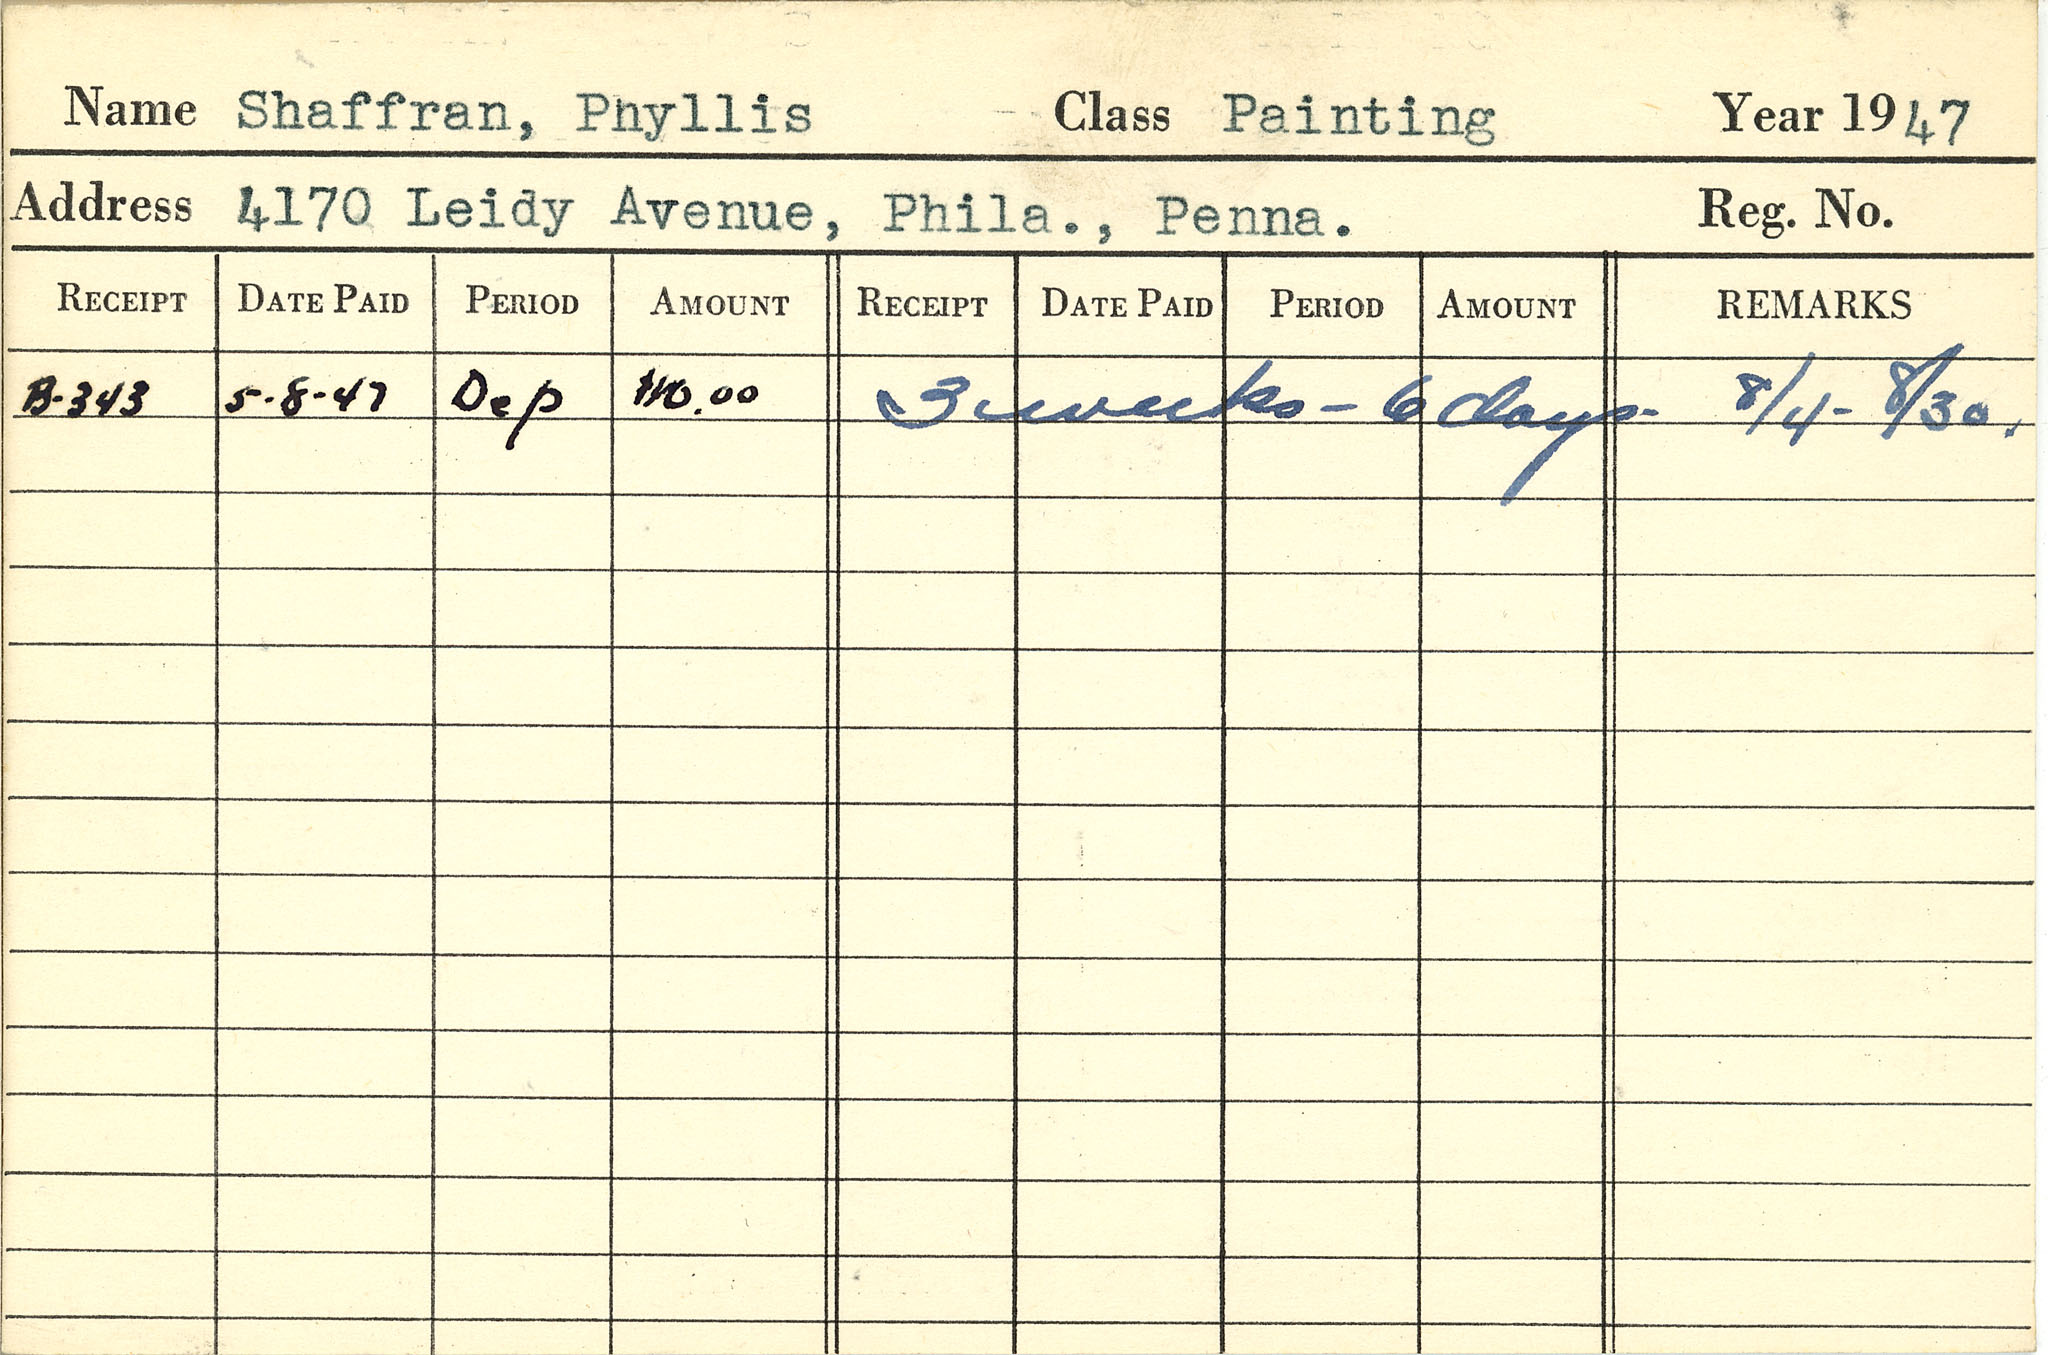 Name Shaffran, Phyllis Class Painting Year 1947
Address 4170 Leidy Avenue, Phila., Penna. Reg. No.
RECEIPT DATE PAID PERIOD AMOUNT RECEIPT DATE PAID PERIOD AMOUNT REMARKS
B-343 5-8-47 Dep $10.00 3 weeks - 6 days - 8/4 - 8/30.